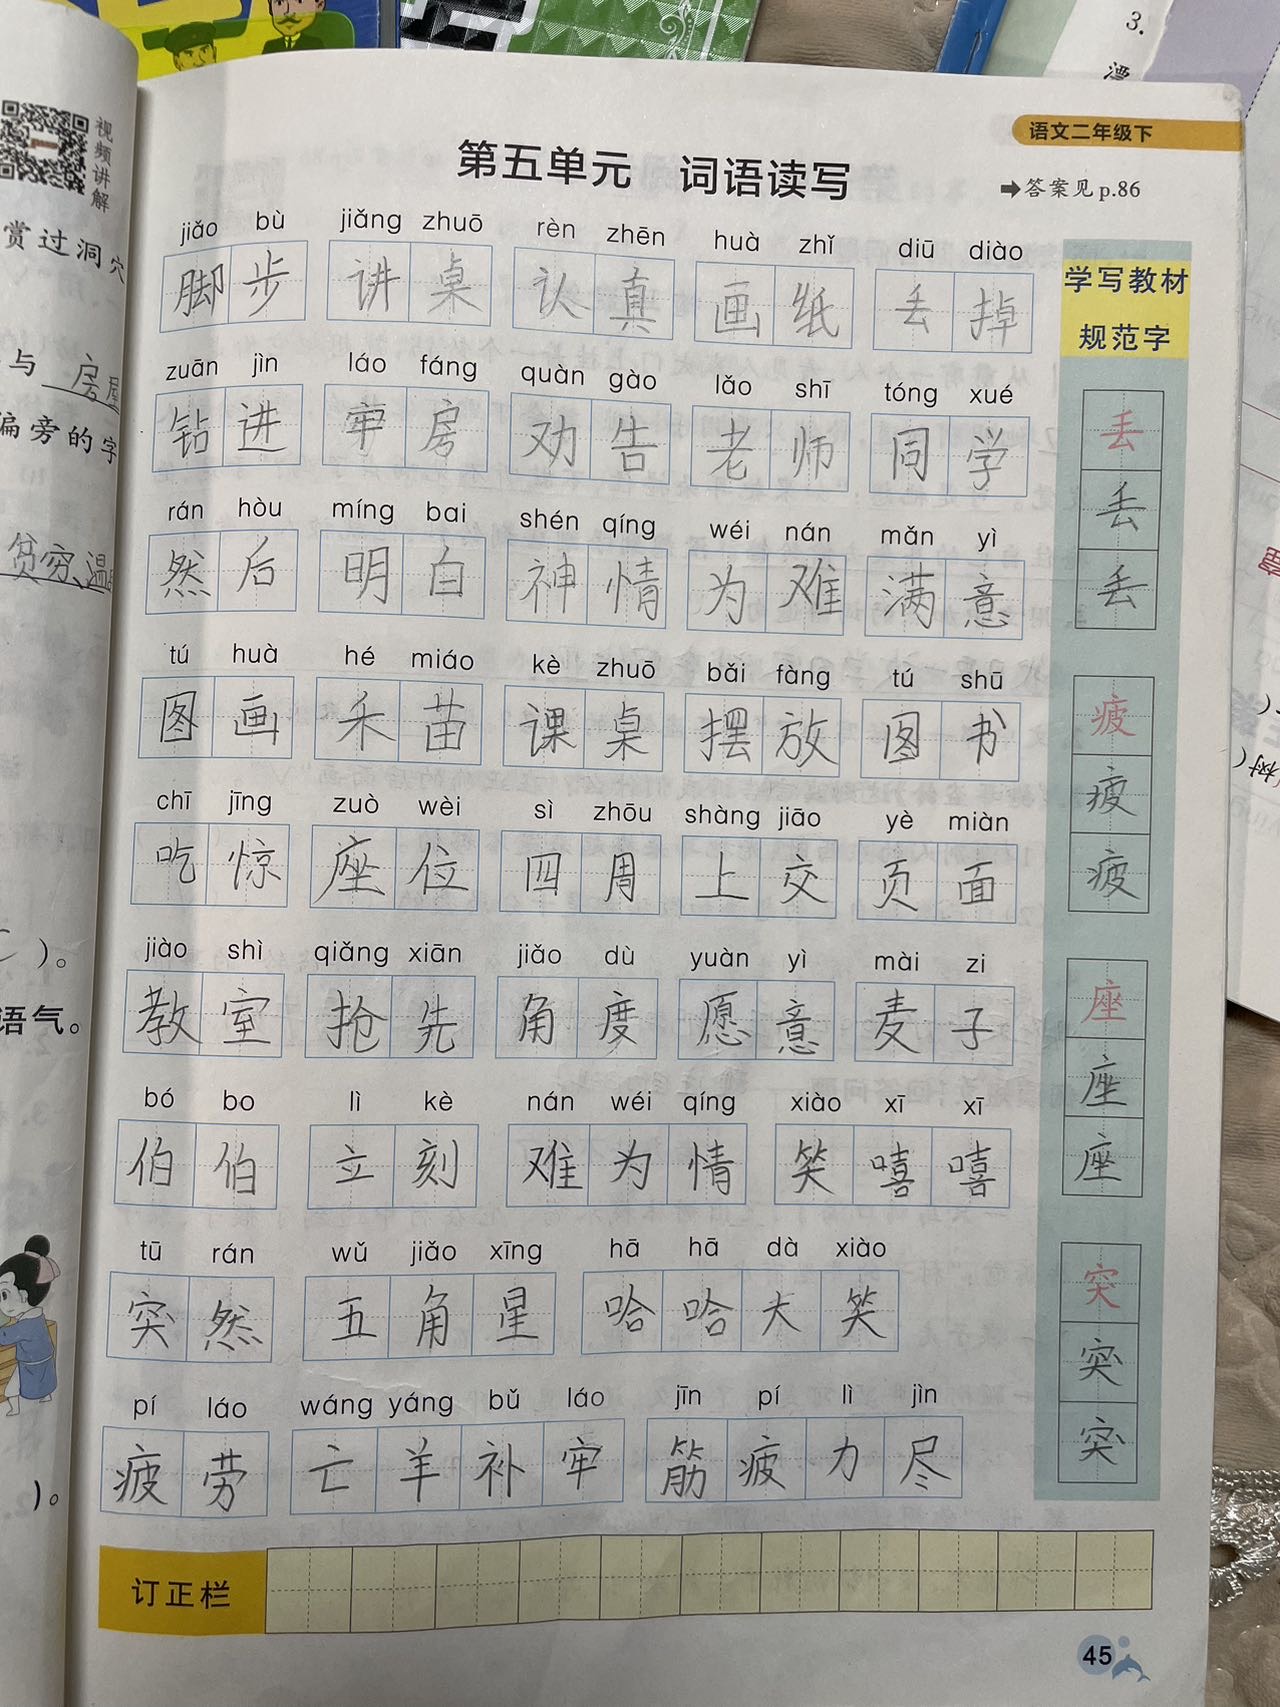 视频讲解
赏过洞穴
与 房屋
偏旁的字
贫穷、温
)。
语气。
)。
3.
漂
语文二年级下
第五单元 词语读写
➡答案见p.86
jiǎo bù jiǎng zhuō rèn zhēn huà zhǐ diū diào
脚步 讲桌 认真 画纸 丢掉
zuān jìn láo fáng quàn gào lǎo shī tóng xué
钻进 牢房 劝告 老师 同学
rán hòu míng bai shén qíng wéi nán mǎn yì
然后 明白 神情 为难 满意
tú huà hé miáo kè zhuō bǎi fàng tú shū
图画 禾苗 课桌 摆放 图书
chī jīng zuò wèi sì zhōu shàng jiāo yè miàn
吃惊 座位 四周 上交 页面
jiào shì qiǎng xiān jiǎo dù yuàn yì mài zi
教室 抢先 角度 愿意 麦子
bó bo lì kè nán wéi qíng xiào xī xī
伯伯 立刻 难为情 笑嘻嘻
tū rán wǔ jiǎo xīng hā hā dà xiào
突然 五角星 哈哈大笑
pí láo wáng yáng bǔ láo jīn pí lì jìn
疲劳 亡羊补牢 筋疲力尽
学写教材
规范字
丢
丢
丢
疲
疲
疲
座
座
座
突
突
突
订正栏
45